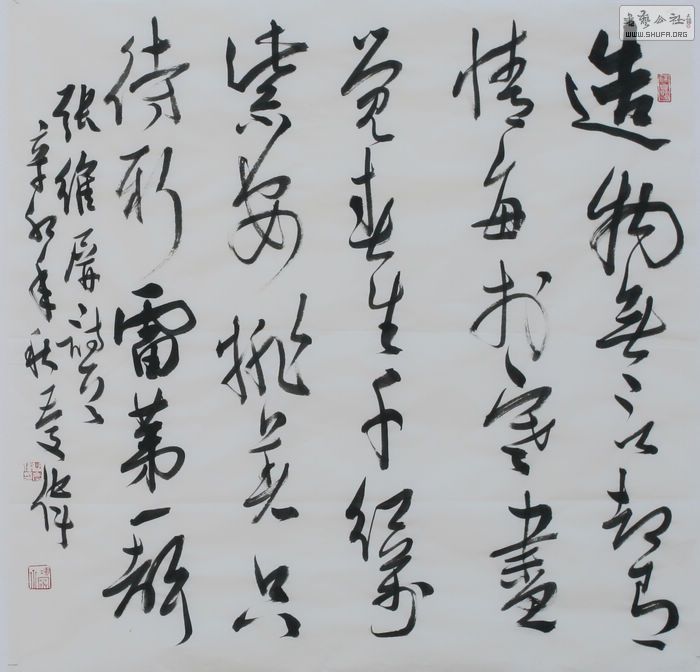 造物無言却有
情每於寒盡
覺春生千紅萬
紫安排着只
待新雷第一聲
張維屏詩
辛卯年秋
書藝公社
WWW.SHUFA.ORG